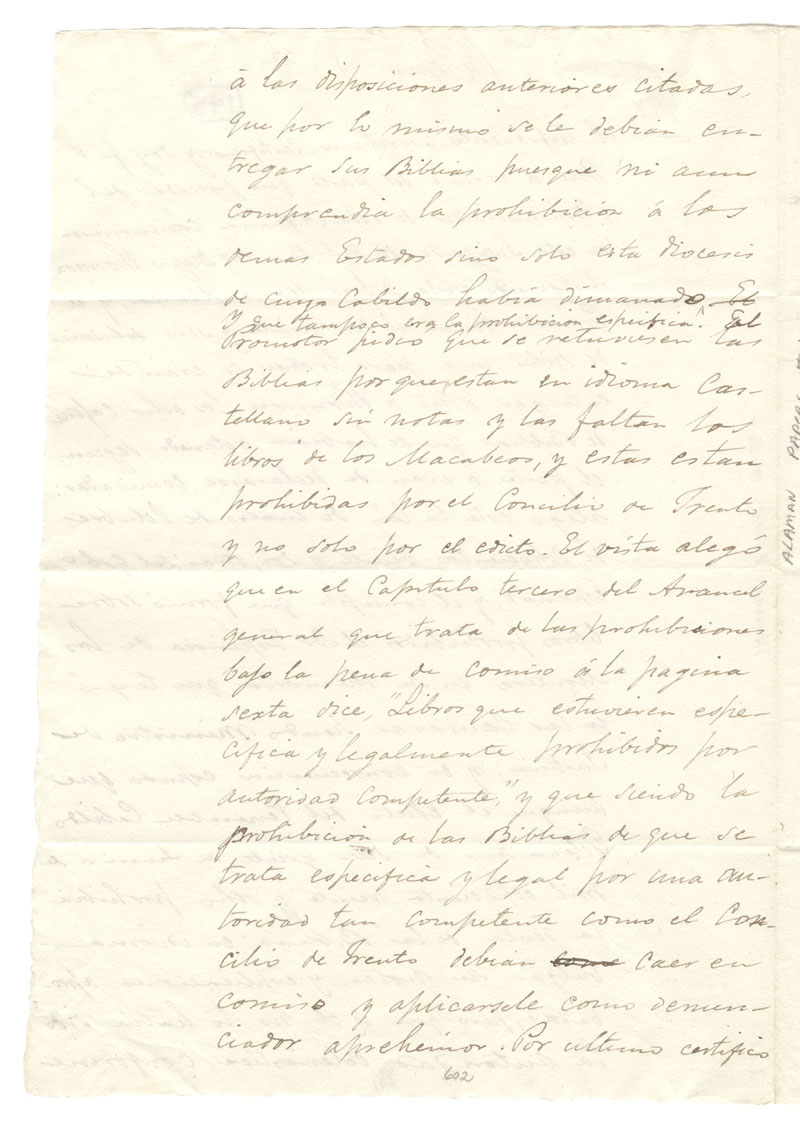 á las disposiciones anteriores citadas,
que por lo mismo se le debian en-
tregar sus Biblias puesque ni aun
comprendia la prohibicion á los
demas Estados sino solo esta diocesis
de cuyo Cabildo habia dimanado. El
Y que tampoco era la prohibicion espesifica. El
Promotor pidió que se retuviesen las
Biblias por que estan en idioma Cas-
tellano sin notas y las faltan los
libros de los Macabeos, y estas estan
prohibidas por el Concilio de Trento
y no solo por el edicto. El vista alegó
que en el Capitulo tercero del Arancel
general que trata de las prohibiciones
bajo la pena de comiso á la pagina
sexta dice, "Libros que estuvieren espe-
cifica y legalmente prohibidos por
autoridad competente," y que siendo la
prohibicion de las Biblias de que se
trata especifica y legal por una au-
toridad tan competente como el Con-
cilio de Trento debian come caer en
comiso y aplicarsele como denun-
ciador aprehensor. Por ultimo certifico
602
ALAMAN PAPERS